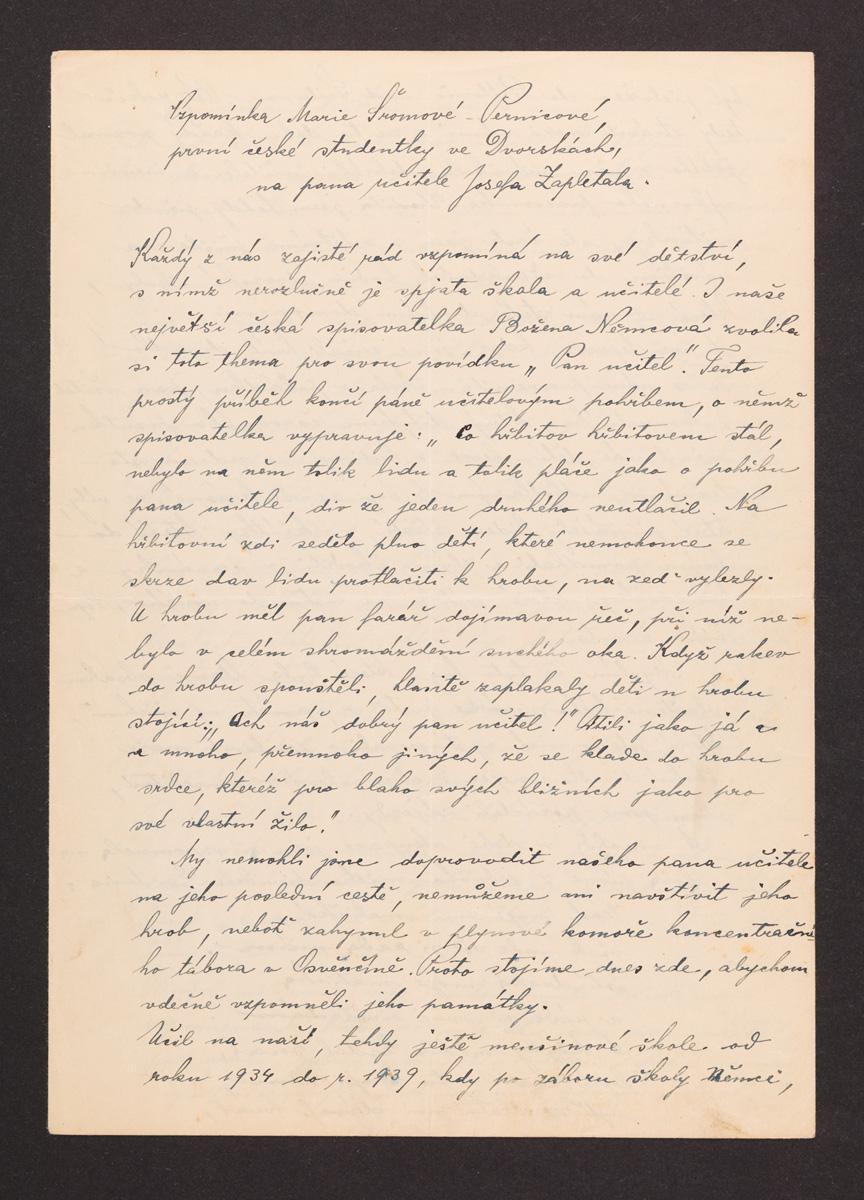 Vzpomínka Marie Šromové-Pernicové,
první české studentky ve Dvorskách,
na pana učitele Josefa Zapletala.
Každý z nás zajisté rád vzpomíná na své dětství,
s nímž nerozlučně je spjata škola a učitelé. I naše
největší česká spisovatelka Božena Němcová zvolila
si toto thema pro svou povídku „Pan učitel". Tento
prostý příběh končí páně učitelovým pohřbem, o němž
spisovatelka vypravuje: „Co hřbitov hřbitovem stál,
nebylo na něm tolik lidu a tolik pláče jako o pohřbu
pana učitele, div že jeden druhého neutlačil. Na
hřbitovní zdi sedělo plno dětí, které nemohouce se
skrze dav lidu protlačiti k hrobu, na zeď vylezly.
U hrobu měl pan farář dojímavou řeč, při níž ne-
bylo v celém shromáždění suchého oka. Když rakev
do hrobu spouštěli, hlasitě zaplakaly děti u hrobu
stojící: „Ach náš dobrý pan učitel!" Cítili jako já a
a mnoho, přemnoho jiných, že se klade do hrobu
srdce, kteréž pro blaho svých bližních jako pro
své vlastní žilo."
My nemohli jsme doprovodit našeho pana učitele
na jeho poslední cestě, nemůžeme ani navštívit jeho
hrob, neboť zahynul v plynové komoře koncentrační-
ho tábora v Osvěnčíně. Proto stojíme dnes zde, abychom
vděčně vzpomněli jeho památky.
Učil na naší, tehdy ještě menšinové škole od
roku 1934 do r. 1939, kdy po záboru školy Němci,